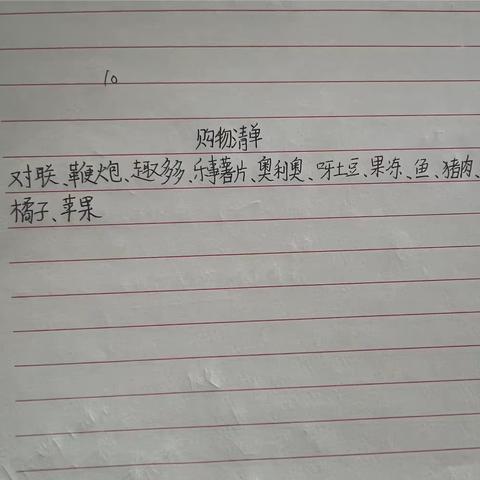 10
购物清单
对联、鞭炮、趣多多、乐事薯片、奥利奥、呀土豆、果冻、鱼、猪肉、
橘子、苹果